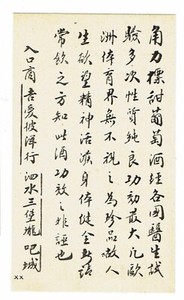 角力標甜葡萄酒經各國醫生試
驗多次性質純良功効最大凡歐
洲体育界無不視之為珍品故人
生欲望精神活潑身体健全對諸
常飲之方知此酒功效之非謬也
入口商 吾爱彼洋行 泗水 三堡壠 吧城